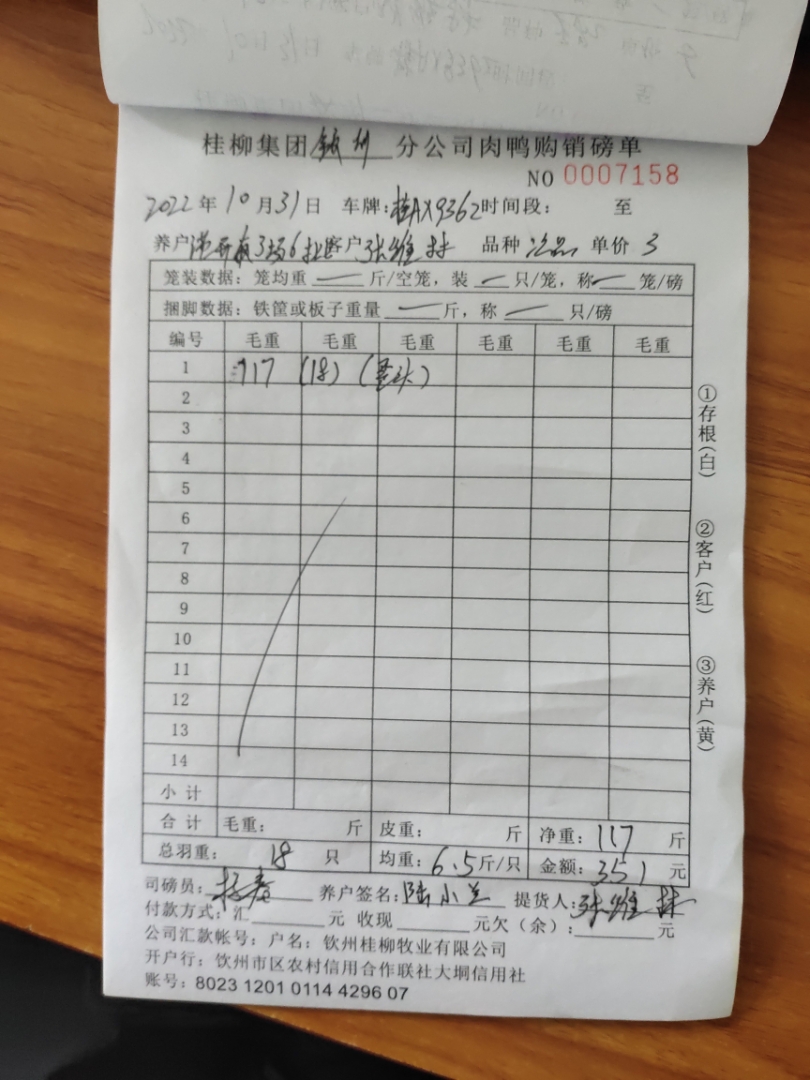 桂柳集团钦州分公司肉鸭购销磅单
NO 0007158
2022年10月31日 车牌:桂AX9362时间段: 至
养户 3场6批客户张维林 品种次品 单价 3
笼装数据: 笼均重 — 斤/空笼, 装 — 只/笼, 称 — 笼/磅
捆脚数据: 铁筐或板子重量 — 斤, 称 — 只/磅
编号 毛重 毛重 毛重 毛重 毛重 毛重
1 117 (18)
2
3
4
5
6
7
8
9
10
11
12
13
14
小计
合计 毛重: 斤 皮重: 斤 净重: 117 斤
总羽重: 18 只 均重: 6.5斤/只 金额: 351元
司磅员: 养户签名:陆小兰 提货人:张维林
付款方式: 汇 元 收现 元欠(余): 元
公司汇款帐号: 户名: 钦州桂柳牧业有限公司
开户行: 钦州市区农村信用合作联社大垌信用社
账号: 8023 1201 0114 4296 07
①存根(白)
②客户(红)
③养户(黄)